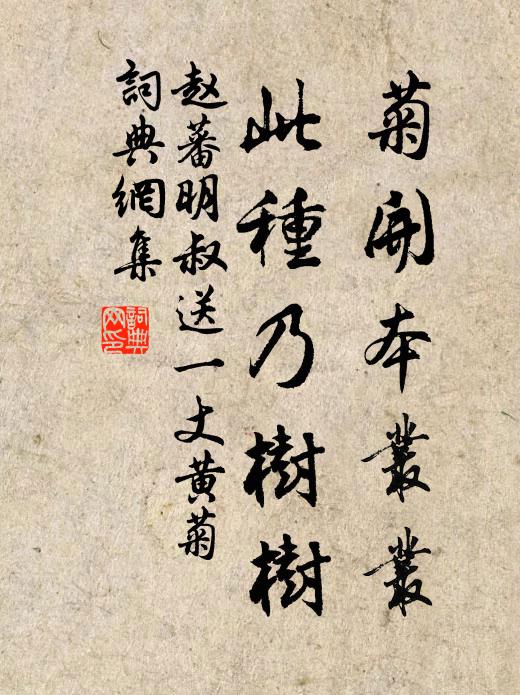 菊開本叢叢
此種乃樹樹
赵蕃明叔送一丈黄菊
詞典網集
詞典网印